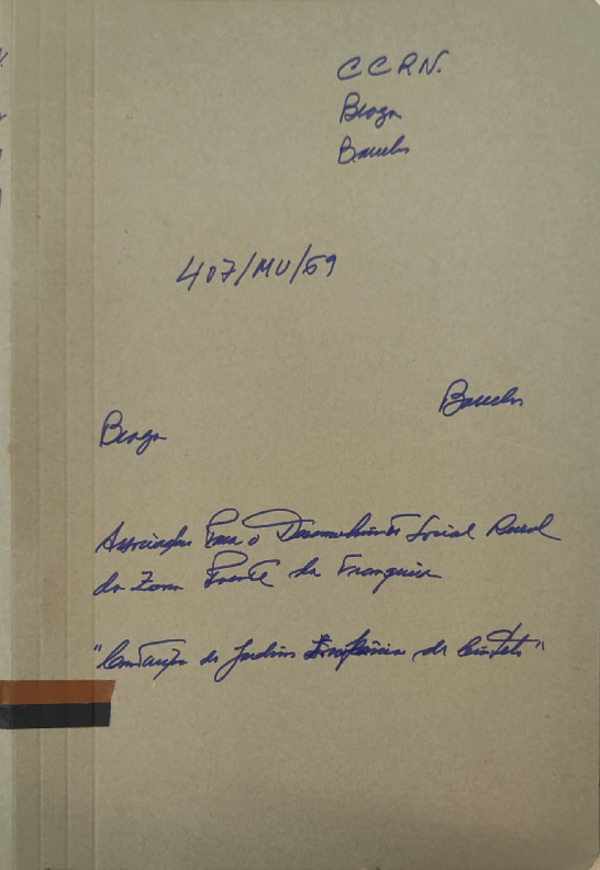 C C R N.
Braga
Barcelos
407/MU/69
Barcelos
Braga
Associação Para o Desenvolvimento Social Rural
da Zona Poente da Franqueira
"Construção do Jardim Infância de"